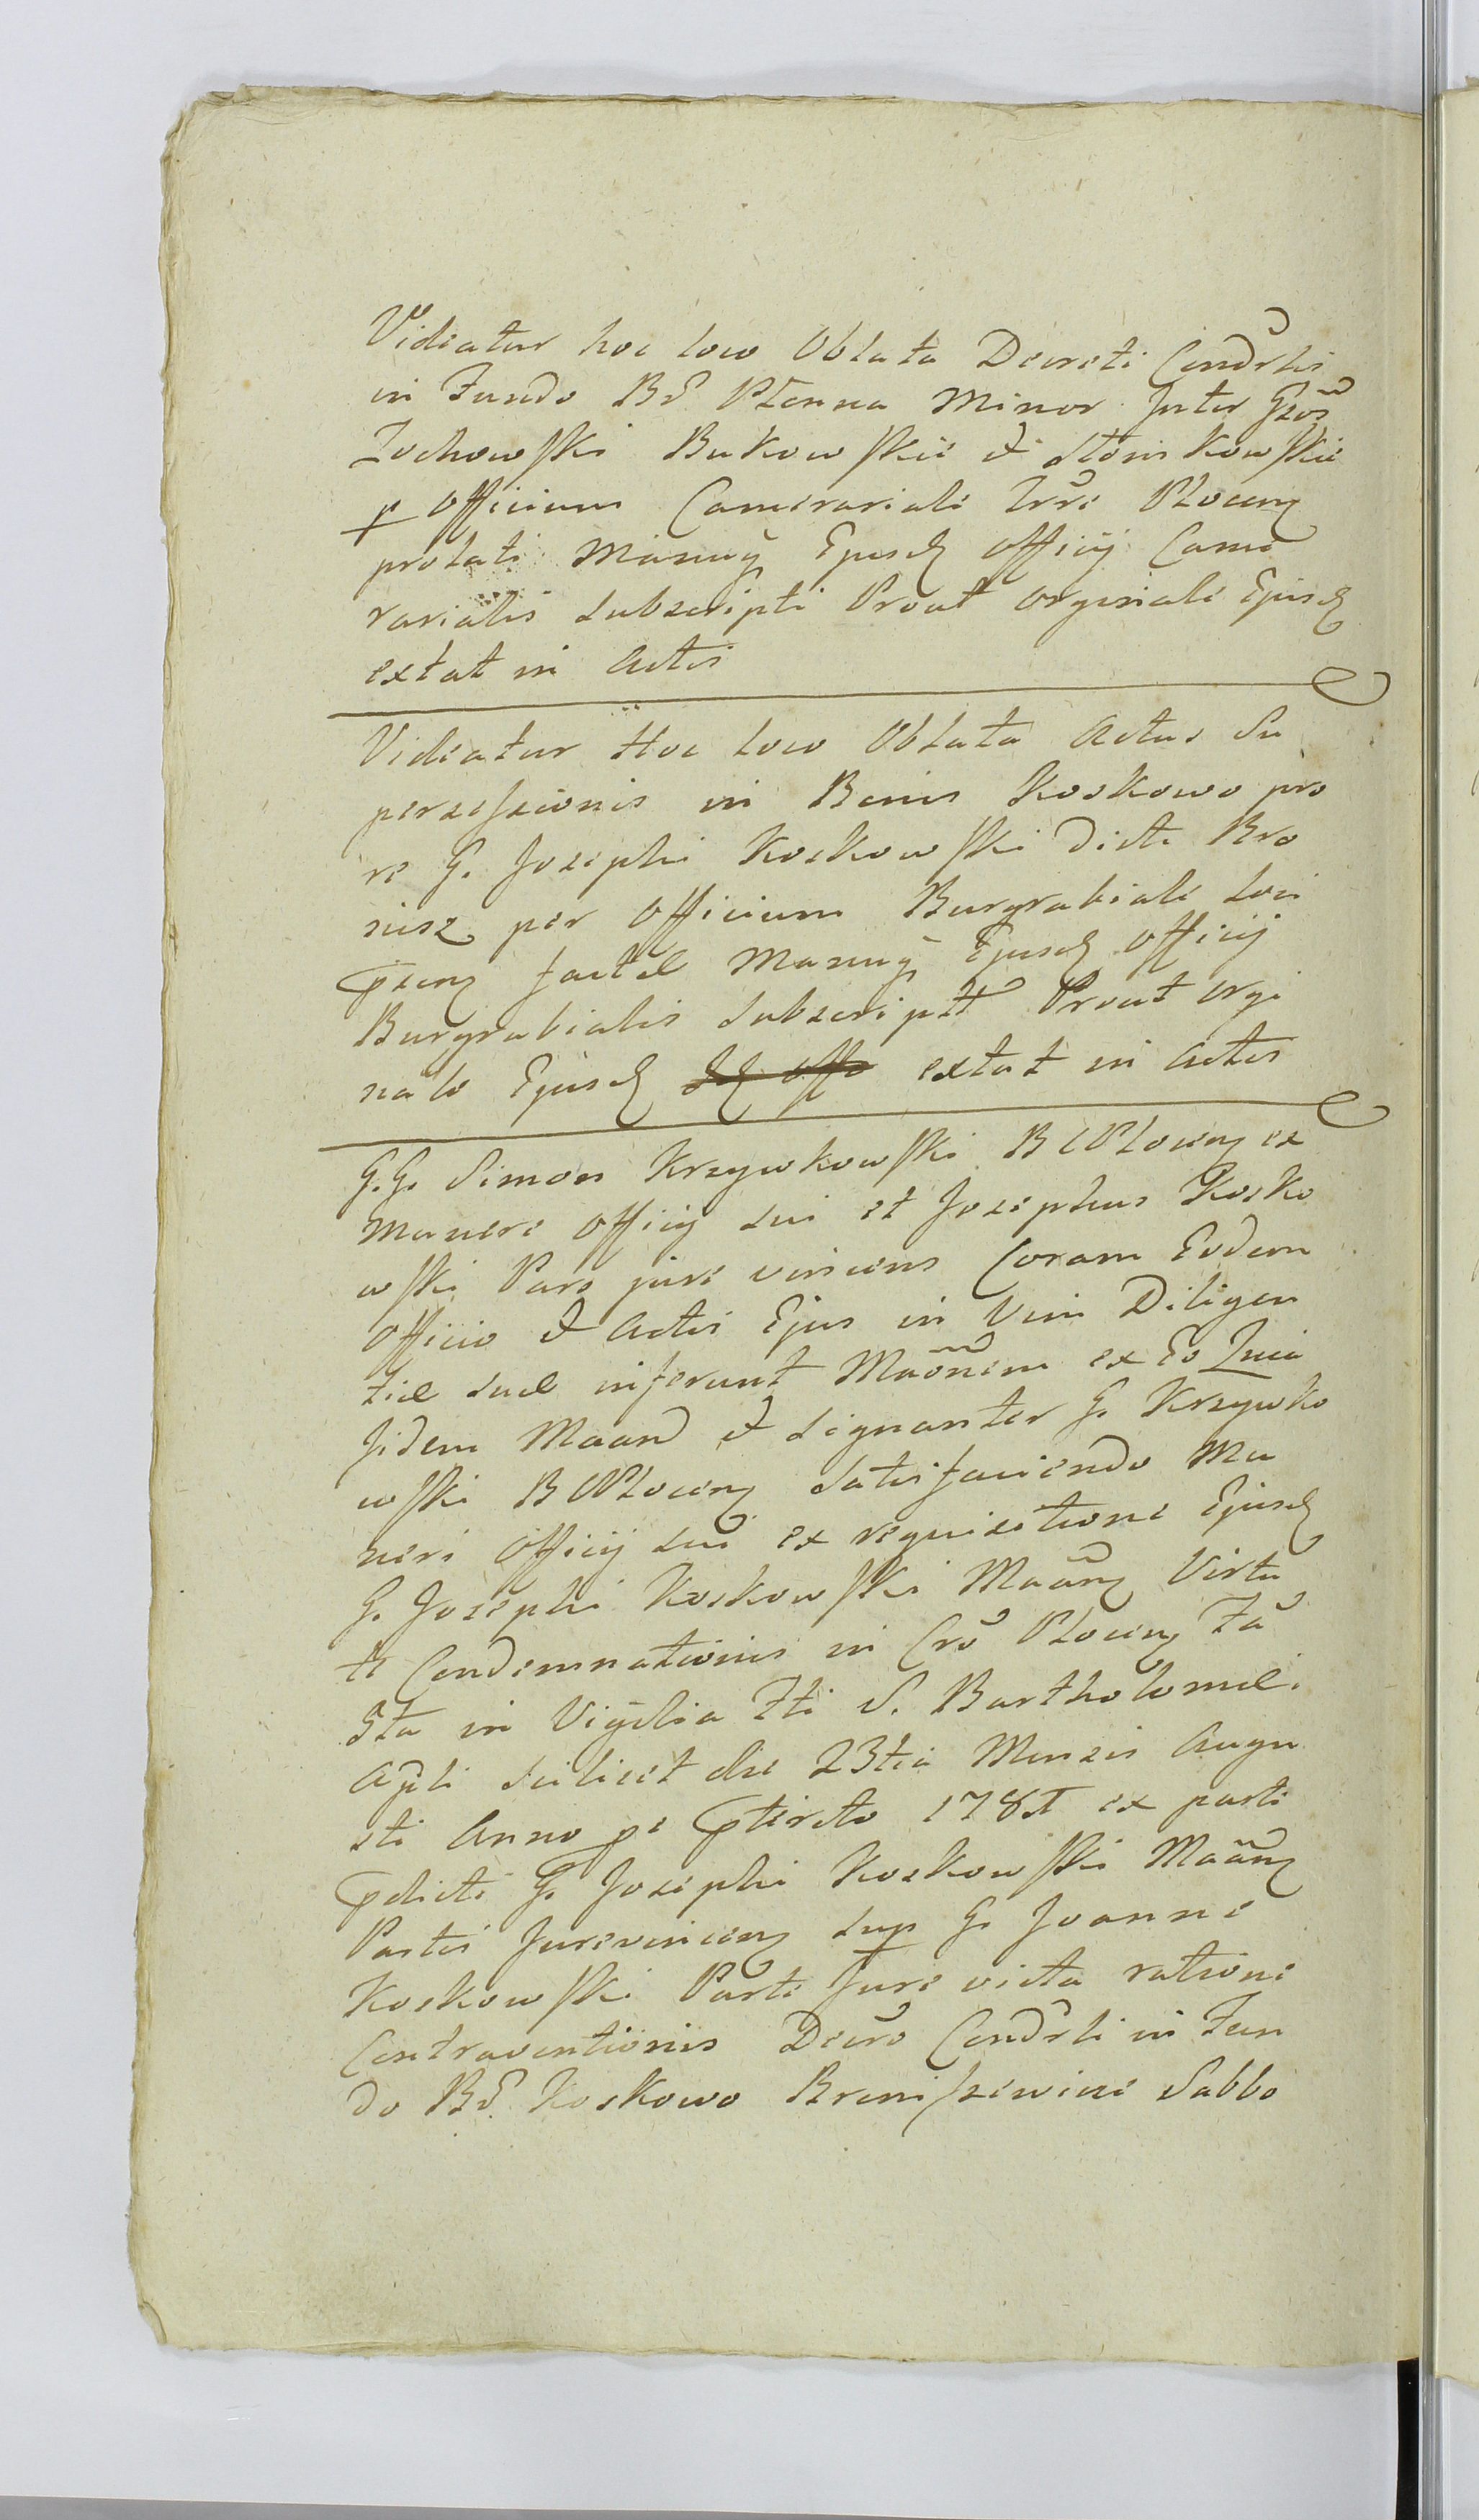 Videatur hoc loco Oblata Decreti Condrlis
in Fundo Bd Płonna Minor Inter Gsos
Zochowski Bukowskie & Słonskowskie
p Officium Camerariale Trre Plocens
prolati Manuq Ejusd Officij Came
rarialis Subscripti Prout Orginale Ejusd
extat in Actis
Videatur Hoc Loco Oblata Actus Su
persessionis in Bonis Koskowo pro
re G. Josephi Koskowski dicti Bro
nisz per Officium Burgrabiale Loci
psens factæ Manuq Ejusd Officij
Burgrabialis Subscript Prout Orgi
nale Ejusd extat in Actis
G.G. Simon Krzywkowski B C Plocens ex
Munere Officij Sui et Josephus Kosko
wski Pars jure vincens Coram Eodem
Officio & Actis Ejus in Vim Diligen
tiæ Suæ inferunt Maonem ex Eo Quia
Iidem Maand & Signanter G. Krzywko
wski B C Plocens Satisfaciendo Mu
neri Officij Sui ex requisitione Ejusd
G. Josephi Koskowski Maans Virtu
te Condemnationis in Cro Plocens Fa
Sta in Vigilia Fti S. Bartholomæi
Apli Scilicet die 23tia Mensis Augu
sti Anno pe ptirito 178 ex parte
pdicti G. Josephi Koskowski Maans
Partis Jurevincens Sup G. Joanne
Koskowski Parte Jure victa ratione
Contraventionis Decro Condrli in Fun
do Bd. Koskowo Broniszewice Sabbo